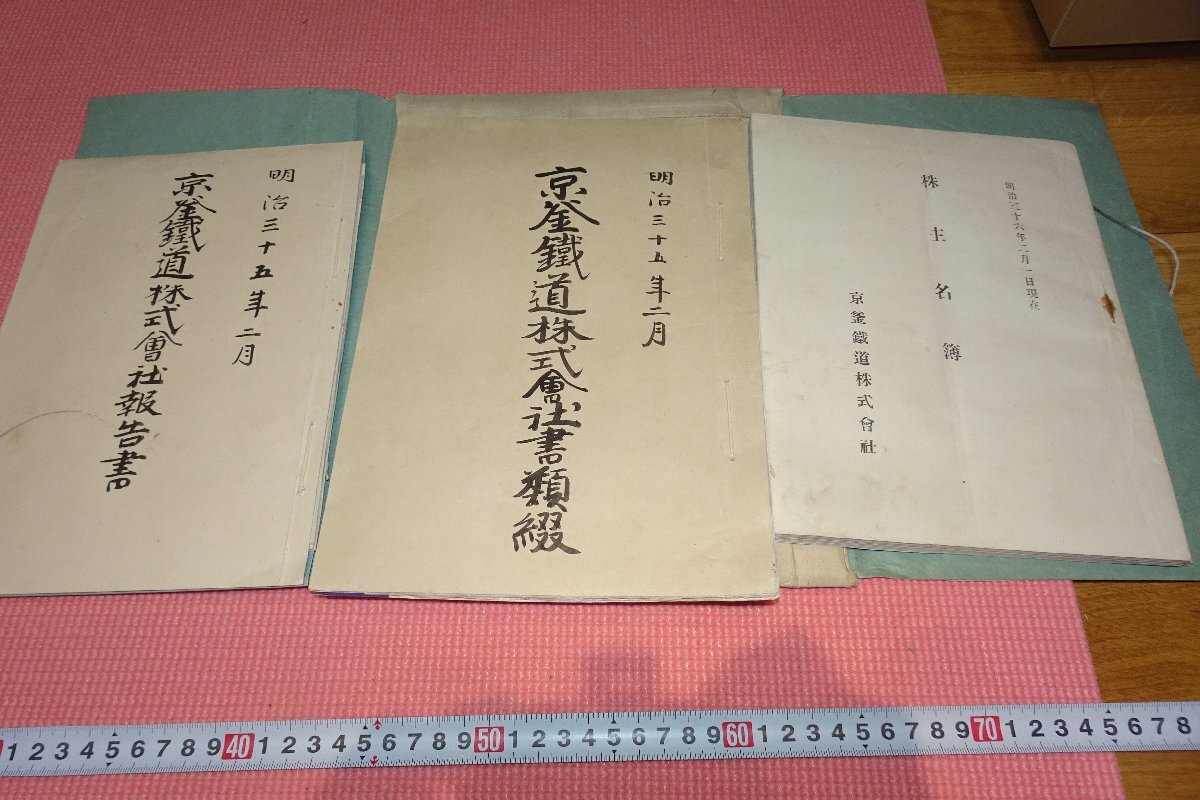 明治三十五年二月
京釜鐵道株式會社報告書
明治三十五年二月
京釜鐵道株式會社書類綴
明治三十六年二月一日現在
株主名簿
京釜鐵道株式會社
1 2 3 4 5 6 7 8 9 40 1 2 3 4 5 6 7 8 9 50 1 2 3 4 5 6 7 8 9 60 1 2 3 4 5 6 7 8 9 70 1 2 3 4 5 6 7 8